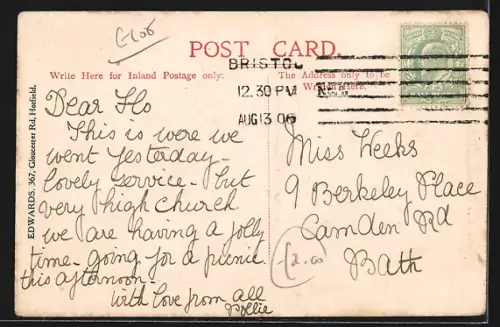 £1.00
POST CARD.
Write Here for Inland Postage only.
The Address only to be
Written Here.
BRISTOL
12.30 PM
AUG 13 06
EDWARDS, 367, Gloucester Rd, Horfield.
Dear Flo
This is were we
went yesterday -
lovely service - but
very high church
we are having a jolly
time - going for a picnic
this afternoon -
with love from all
Pollie
Miss Weeks
9 Berkeley Place
Camden Rd
Bath
£2.00